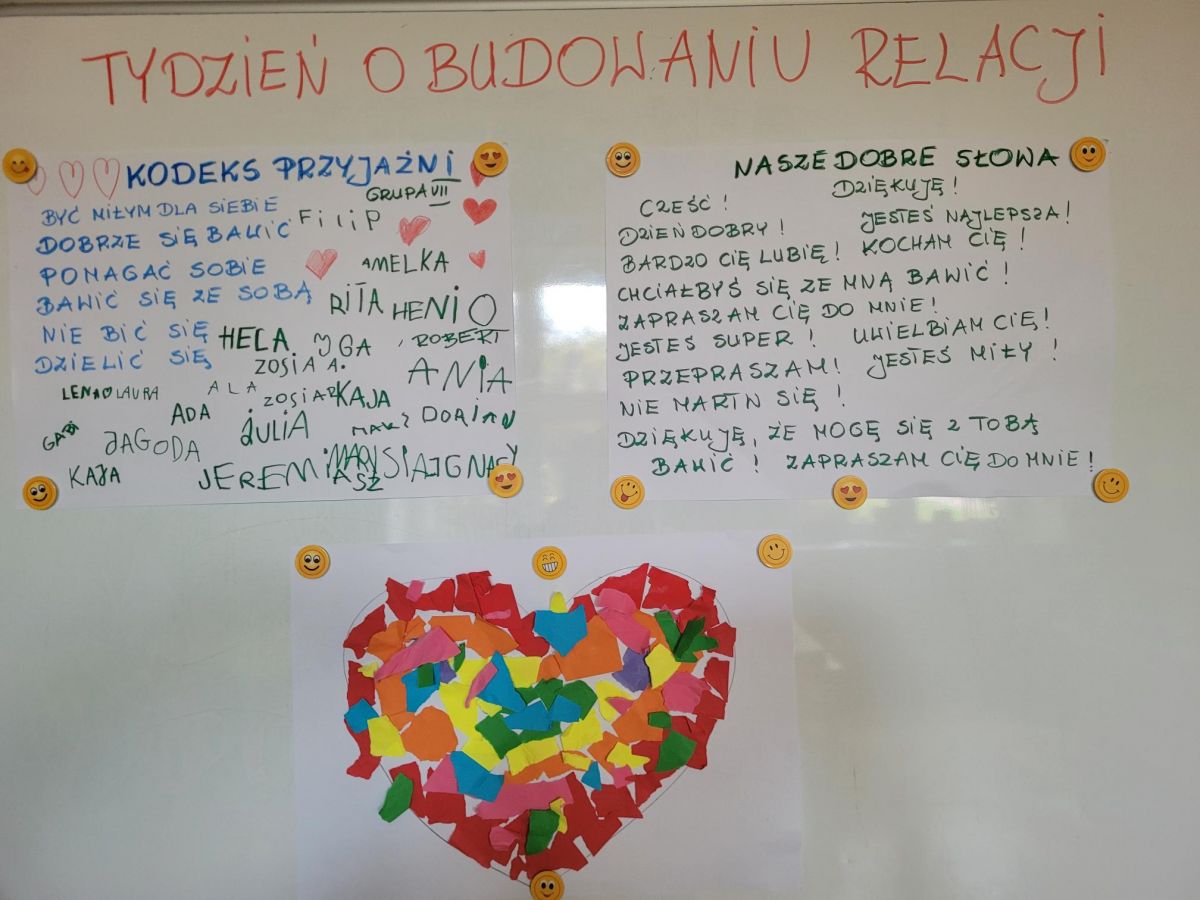 TYDZIEŃ O BUDOWANIU RELACJI
KODEKS PRZYJAŹNI
GRUPA VII
BYĆ MIŁYM DLA SIEBIE
DOBRZE SIĘ BAWIĆ
POMAGAĆ SOBIE
BAWIĆ SIĘ ZE SOBĄ
NIE BIĆ SIĘ
DZIELIĆ SIĘ
FiliP
AMELKA
RITA HENIO
HELA IGA ROBERT
ZOSIA A.
ANIA
LENA LAURA ALA ZOSIA KAJA
ADA JULIA MAKS DORIAN
GABI JAGODA
KAJA JEREMIASZ MARYSIA IGNACY
NASZE DOBRE SŁOWA
DZIĘKUJĘ!
CZEŚĆ!
JESTEŚ NAJLEPSZA!
DZIEŃ DOBRY!
BARDZO CIĘ LUBIĘ! KOCHAM CIĘ!
CHCIAŁBYŚ SIĘ ZE MNĄ BAWIĆ!
ZAPRASZAM CIĘ DO MNIE!
JESTEŚ SUPER! UWIELBIAM CIĘ!
PRZEPRASZAM! JESTEŚ MIŁY!
NIE MARTW SIĘ!
DZIĘKUJĘ, ŻE MOGĘ SIĘ Z TOBĄ
BAWIĆ! ZAPRASZAM CIĘ DO MNIE!